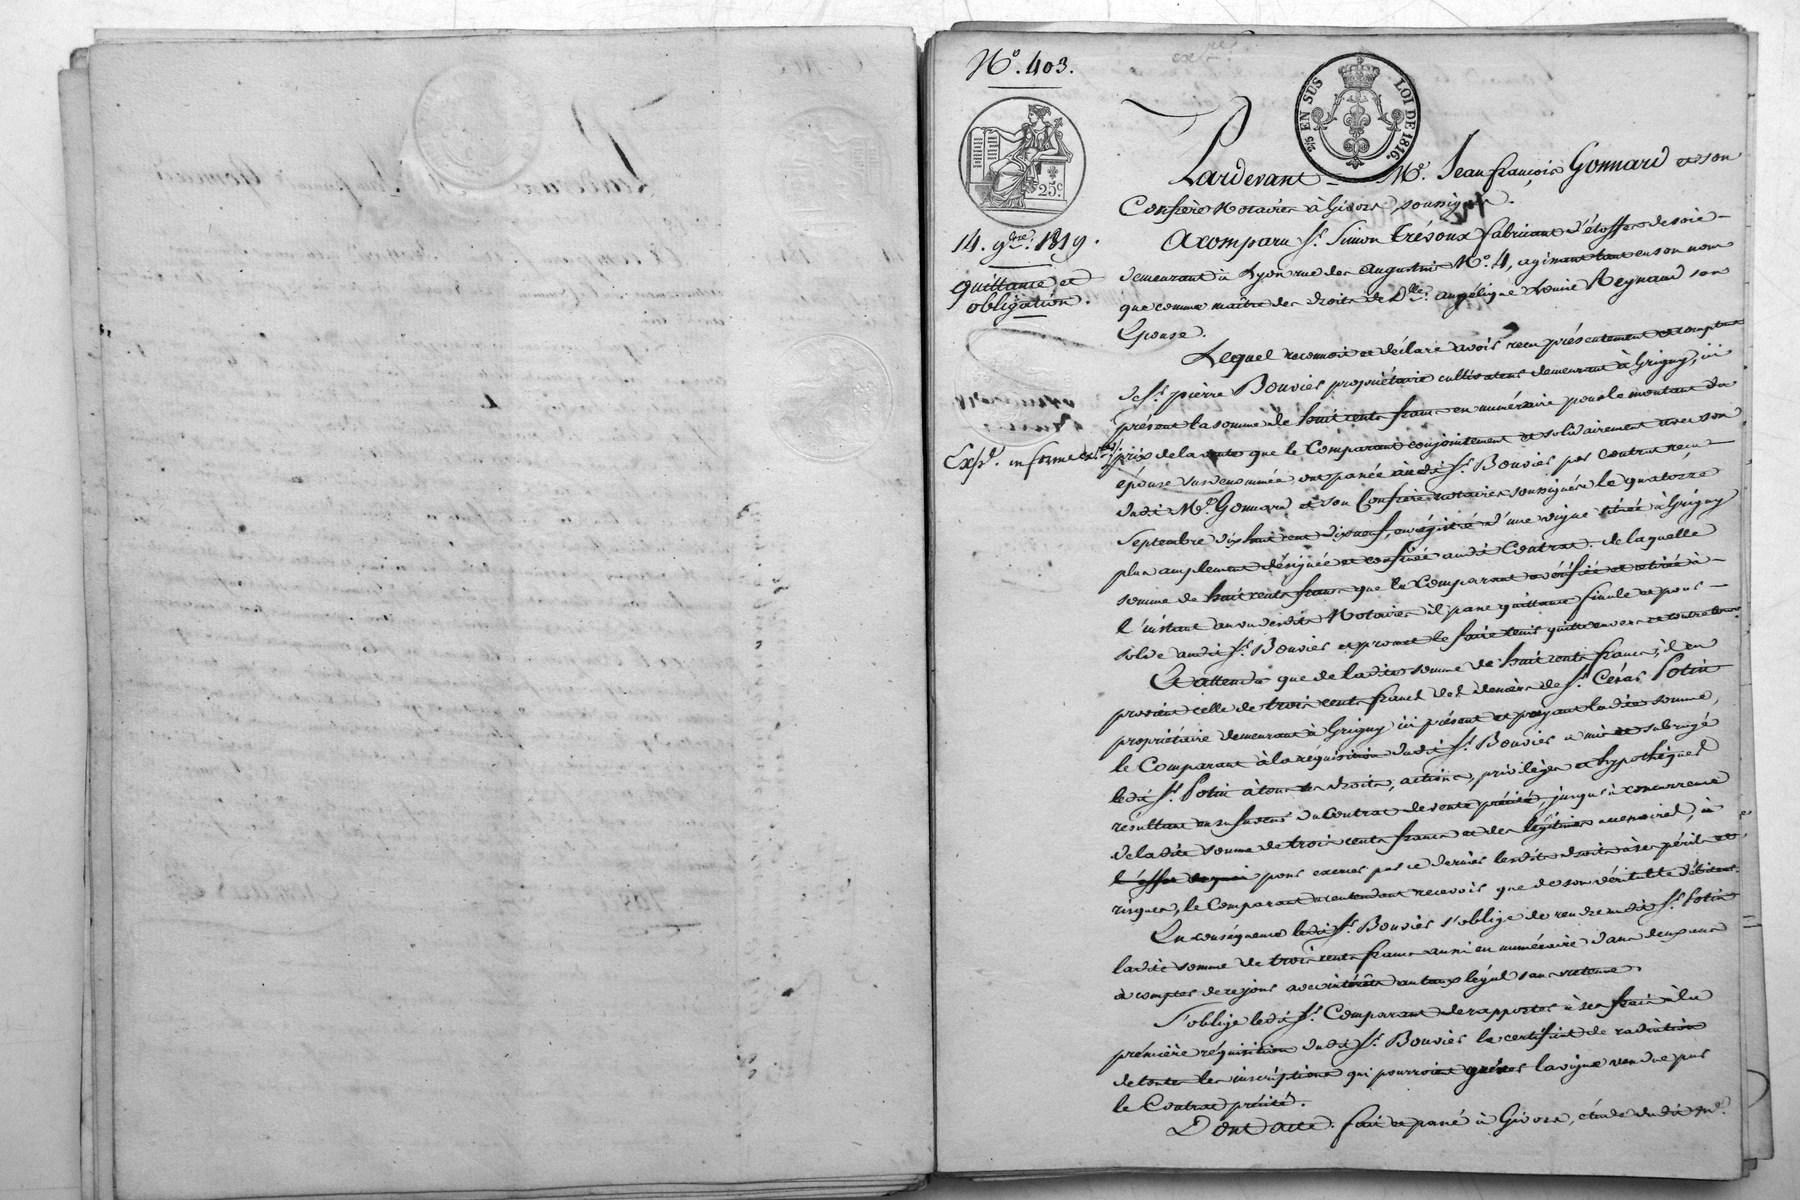 N.° 403.
EN SUS LOI DE 1816.
25.c
14. 9bre. 1819.
quittance et
obligation.
Pardevant Me. Jean françois Gonnard et son
Confrère Notaires à Givors soussignés.
A comparu Sr. Simon Trésoux fabricant d'étoffes de soie
demeurant à Lyon rue des augustins N°. 4, agissant tant en son nom
que comme maître des droits de Dlle. angélique Louise Reynaud son
Epouse.
Lequel reconnoit et déclare avoir reçu présentement et comptant
de Sr. pierre Bouvier propriétaire cultivateur demeurant à Grigny, ici
présent la somme de huit cents francs en numéraire pour le montant du
prix de la vente que le Comparant conjointement et solidairement avec son
épouse susdenommée ont passée audit Sr. Bouvier par Contrat reçu
dudit Me. Gonnard et son Confrère notaires soussignés le quatorze
Septembre dix huit cent dix neuf, enregistré d'une vigne située à Grigny
plus amplement désignée et confinée audit Contrat. de laquelle
somme de huit cents francs que le Comparant a vérifiée et retirée à
l'instant au vu desdits Notaires il passe quittance finale et pour
solde audit Sr. Bouvier et promet le faire tenir quitte envers et contre tous.
Et attendu que de ladite somme de huit cents francs, il en
provient celle de trois cents francs des deniers de Sr. César Potin
propriétaire demeurant à Grigny ici présent et payant ladite somme,
le Comparant à la réquisition dudit Sr. Bouvier a mis et subrogé
ledit Sr. Potin à tous les droits, actions, privilèges et hypothèques
résultant en sa faveur du Contrat de vente précité, jusqu'à concurrence
de ladite somme de trois cents francs et des légitimes accessoires, à
l'effet de quoi pour exercer par ce dernier lesdits droits à ses périls et
risques, le Comparant n'entendant recevoir que de son véritable débiteur.
En conséquence ledit Sr. Bouvier s'oblige de rendre audit Sr. Potin
ladite somme de trois cents francs aussi en numéraire dans deux ans
à compter de ce jour avec intérêts au taux légal sans retenue.
S'oblige ledit Sr. Comparant de rapporter à ses frais à la
première réquisition dudit Sr. Bouvier le certificat de radiation
de toutes les inscriptions qui pourroient grever la vigne vendue par
le Contrat précité.
Dont acte. fait et passé à Givors, étude dudit Me.